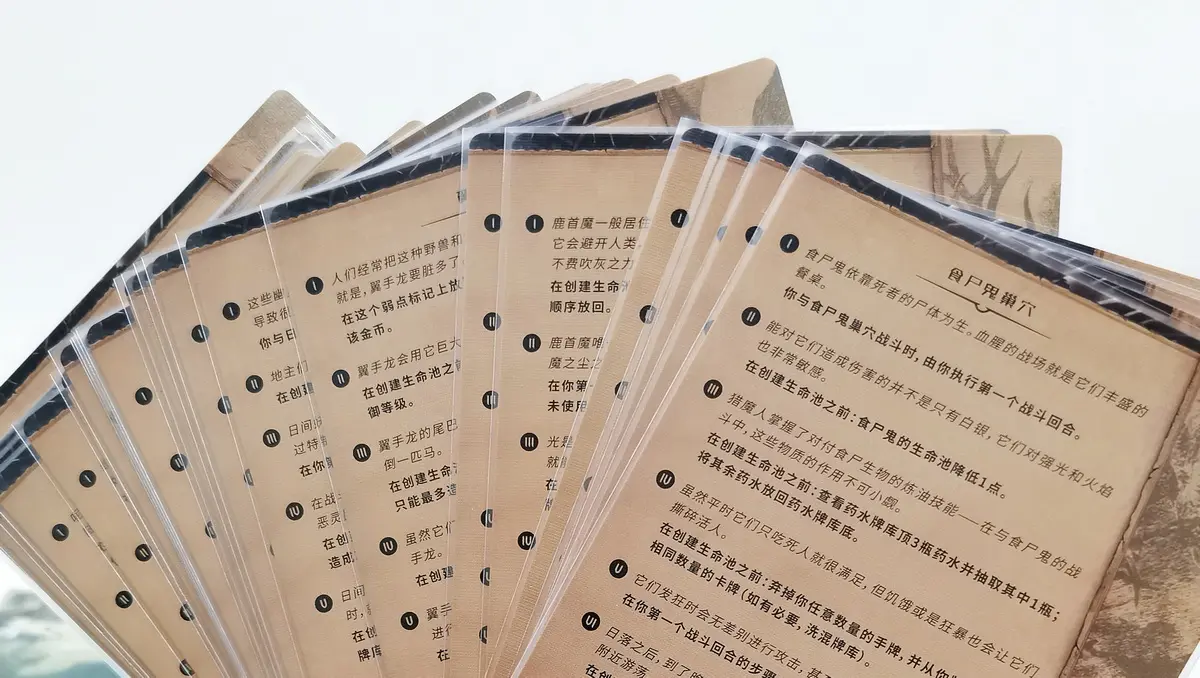 I
这些幽
导致很
你与日
II
地主们
在创建
III
日间
过特
在你
IV
在战
恶灵
在创
造成
V
日间
时,
在创
牌库
I
人们经常把这种野兽和
就是,翼手龙要脏多了
在这个弱点标记上放
该金币。
II
翼手龙会用它巨大
在创建生命池之
御等级。
III
翼手龙的尾巴
倒一匹马。
在创建生命
只能最多造
IV
虽然它们
手龙。
在创建
V
翼手
进行
在
I
鹿首魔一般居住
它会避开人类
不费吹灰之力
在创建生命
顺序放回。
II
鹿首魔唯
魔之尘之
在你第一
未使用
III
光是
就能
在
IV
食尸鬼巢穴
I
食尸鬼依靠死者的尸体为生。血腥的战场就是它们丰盛的
餐桌。
你与食尸鬼巢穴战斗时,由你执行第一个战斗回合。
II
能对它们造成伤害的并不是只有白银,它们对强光和火焰
也非常敏感。
在创建生命池之前:食尸鬼的生命池降低1点。
III
猎魔人掌握了对付食尸生物的炼油技能——在与食尸鬼的战
斗中,这些物质的作用不可小觑。
在创建生命池之前:查看药水牌库顶3瓶药水并抽取其中1瓶;
将其余药水放回药水牌库底。
IV
虽然平时它们只吃死人就很满足,但饥饿或是狂暴也会让它们
撕碎活人。
在创建生命池之前:弃掉你任意数量的手牌,并从你
相同数量的卡牌(如有必要,洗混牌库)。
V
它们发狂时会无差别进行攻击,甚
在你第一个战斗回合的步骤
VI
日落之后,到了
附近游荡
在创